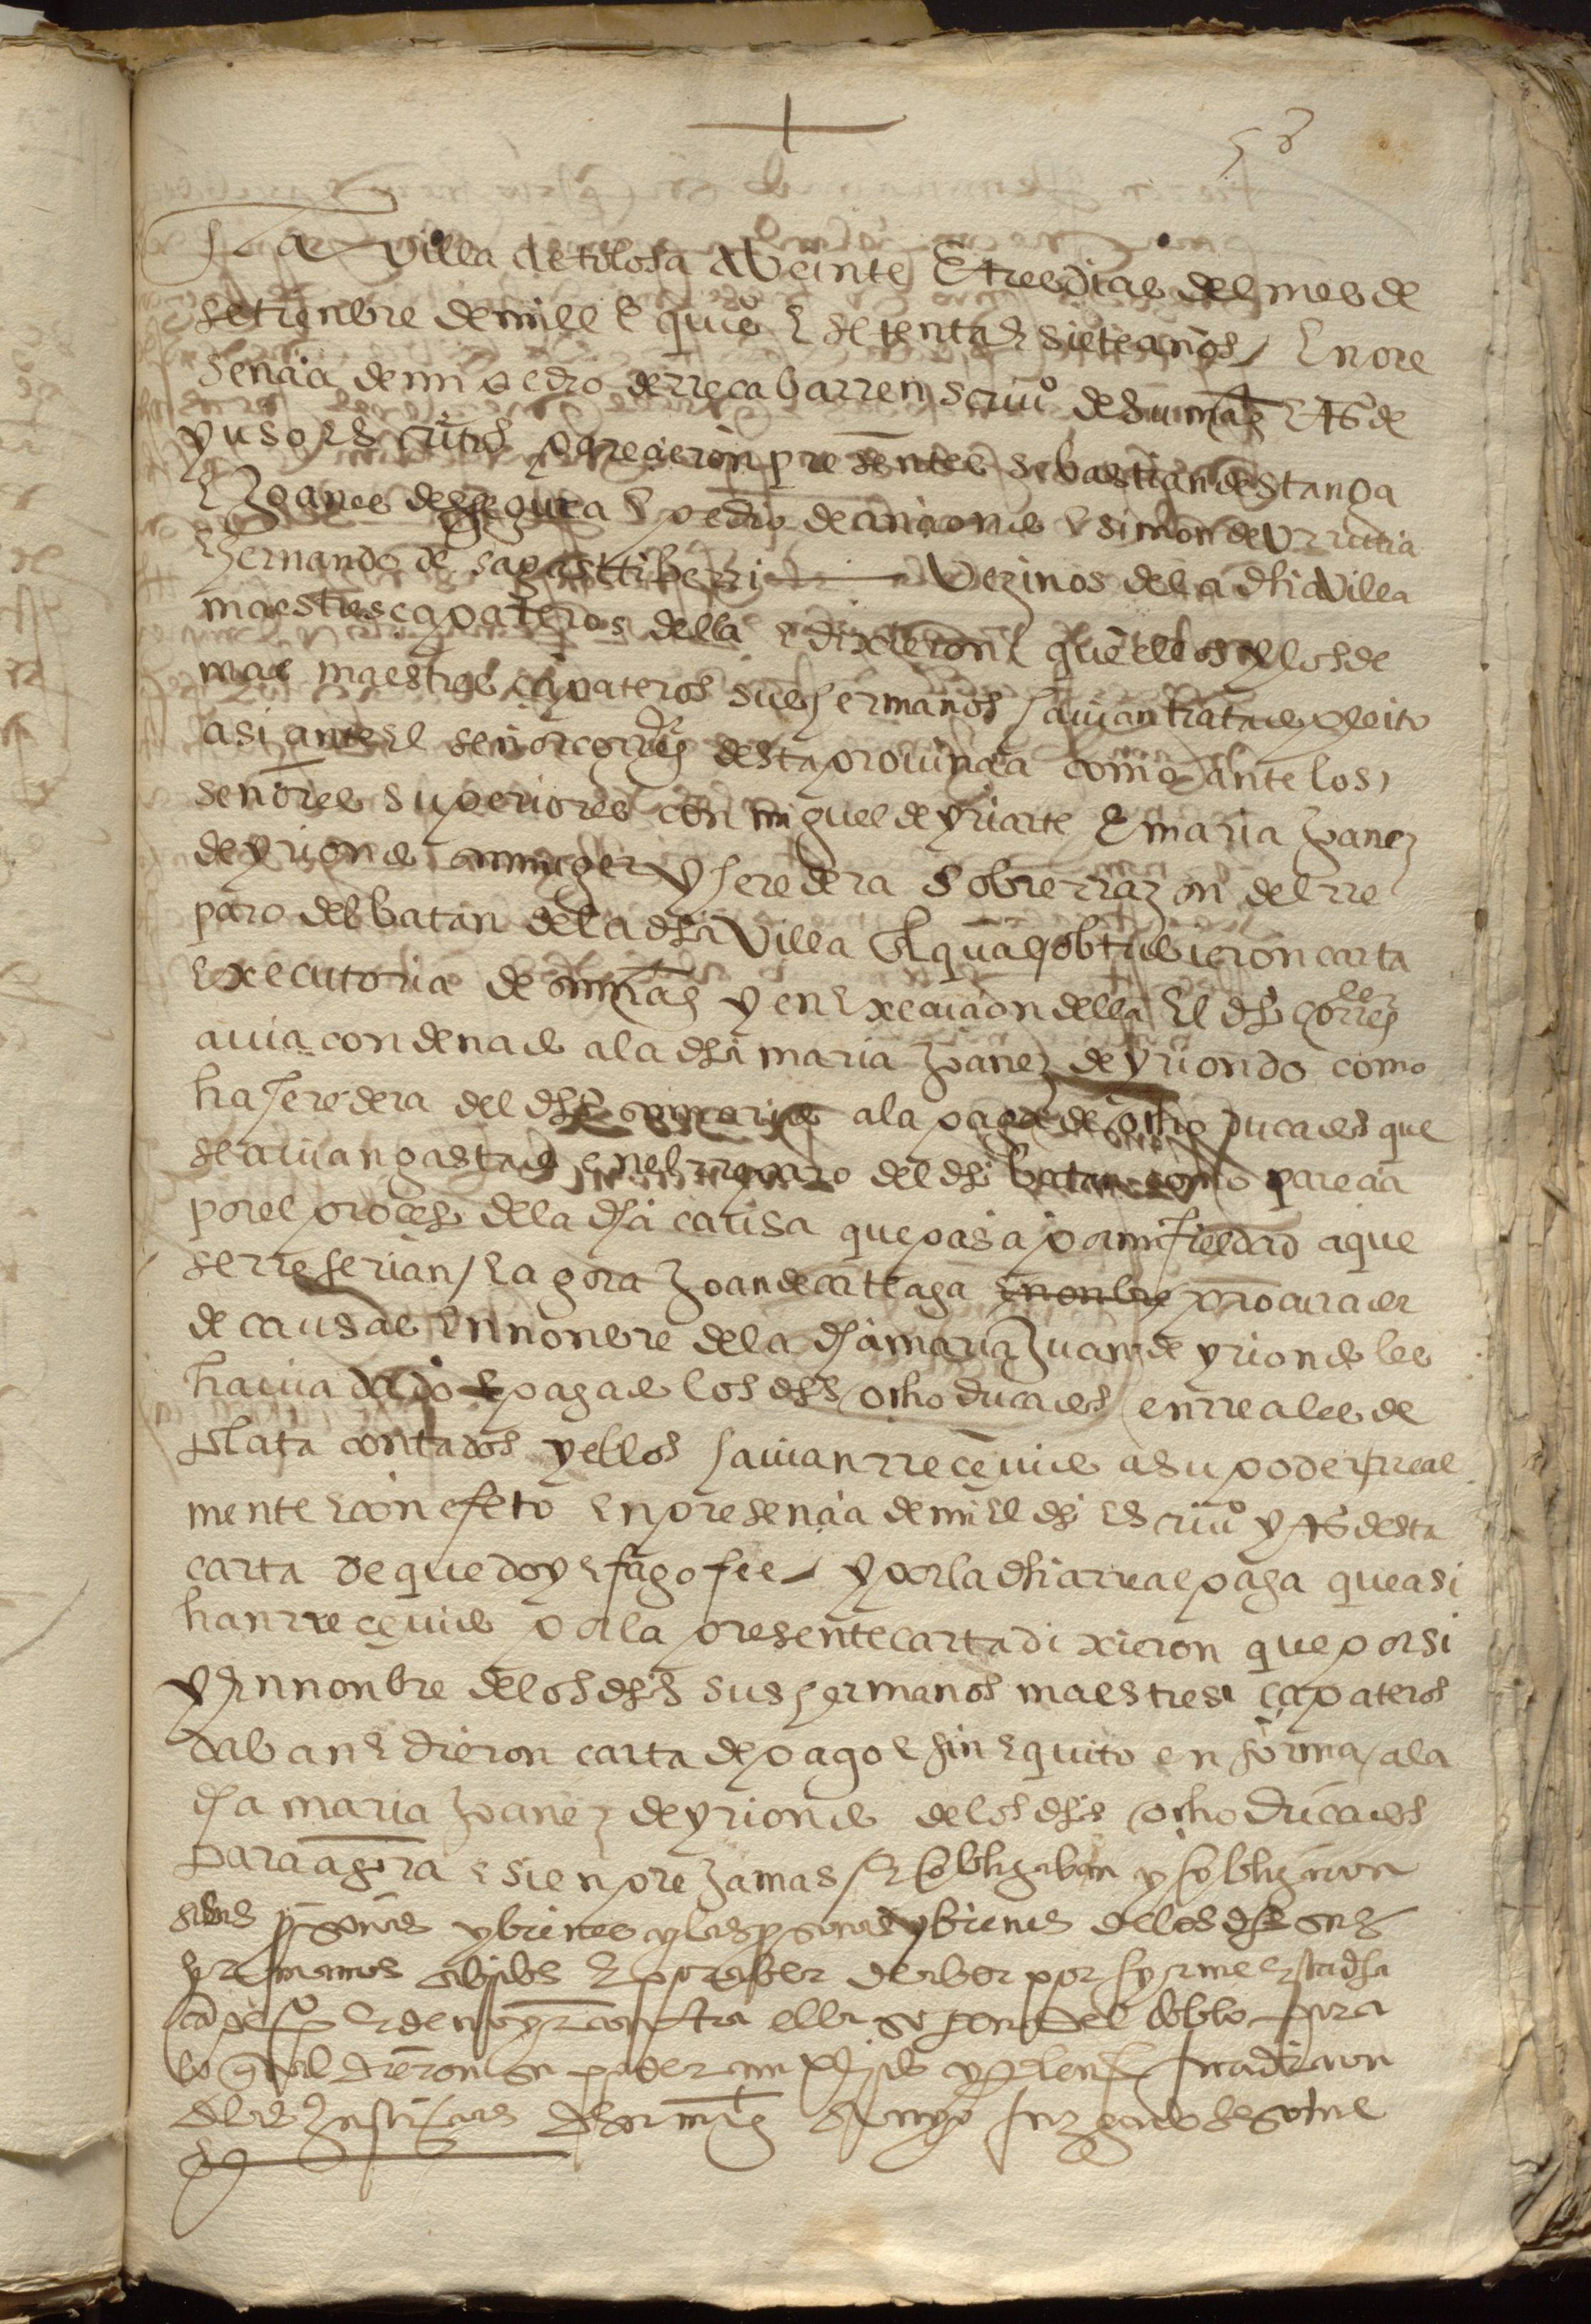 58
En la villa de tolosa a veinte E tres dias del mes de
setienbre de mill E quios E setenta E siete años / En pre
sencia de mi pedro de rrecabarren scriuo de su mag E ts de
yuso escritos parecieron presentes sebastian destanga
E Joanes de segura E pedro de anciondo E simon de vrrutia
E hernando de sagastiberri vezinos de la dha villa
maestres capateros della E dixieron que ellos y los de
mas maestres capateros sus hermanos havian tratado pleito
asi ante el señor corregr desta prouincia como ante los
señores superiores con miguel de yriarte E maria Joanez
de yriondo su muger y heredera sobre rrazon del rre
paro del batan de la dha villa El qual obtubieron carta
Executoria de su mag y en Execucion della El dho corregr
auia condenado a la dha maria Joanez de yriondo como
ha heredera del dho su marido a la paga de ocho ducados que
se auian gastado en el rreparo del dho batan como parecia
por el proceso de la dha causa que pasa por mi fieldad a que
se rreferian / E agora Joan de arteaga en nonbre procurador
de causas En nonbre de la dha maria Juanez de yriondo les
hauia dado E pagado los dhos ocho ducados en rreales de
plata contados y ellos hauian rrecevido a su poder rreal
mente E con efeto En presencia de mi El dho Escriuo y ts desta
carta de que doy E fago fee / y por la dha rreal paga que asi
han rrecevido por la presente carta dixieron que por si
y En nonbre de los dhos sus hermanos maestres capateros
daban E dieron carta de pago E fin E quito en forma / a la
dha maria Joanez de yriondo de los dhos ocho ducados
para agora E sienpre Jamas / E se obligaban y se obligaron
sus personas y bienes y las personas y bienes de los dhos sus
hermanos abidos E por aber de aber por firme esta dha
carta de pago E de no yr contra ella so pena del doblo para
lo qual dieron su poder cunplido y plena Juridicion
a las Justicias de su mag a cuyo Juzgado se sometieron